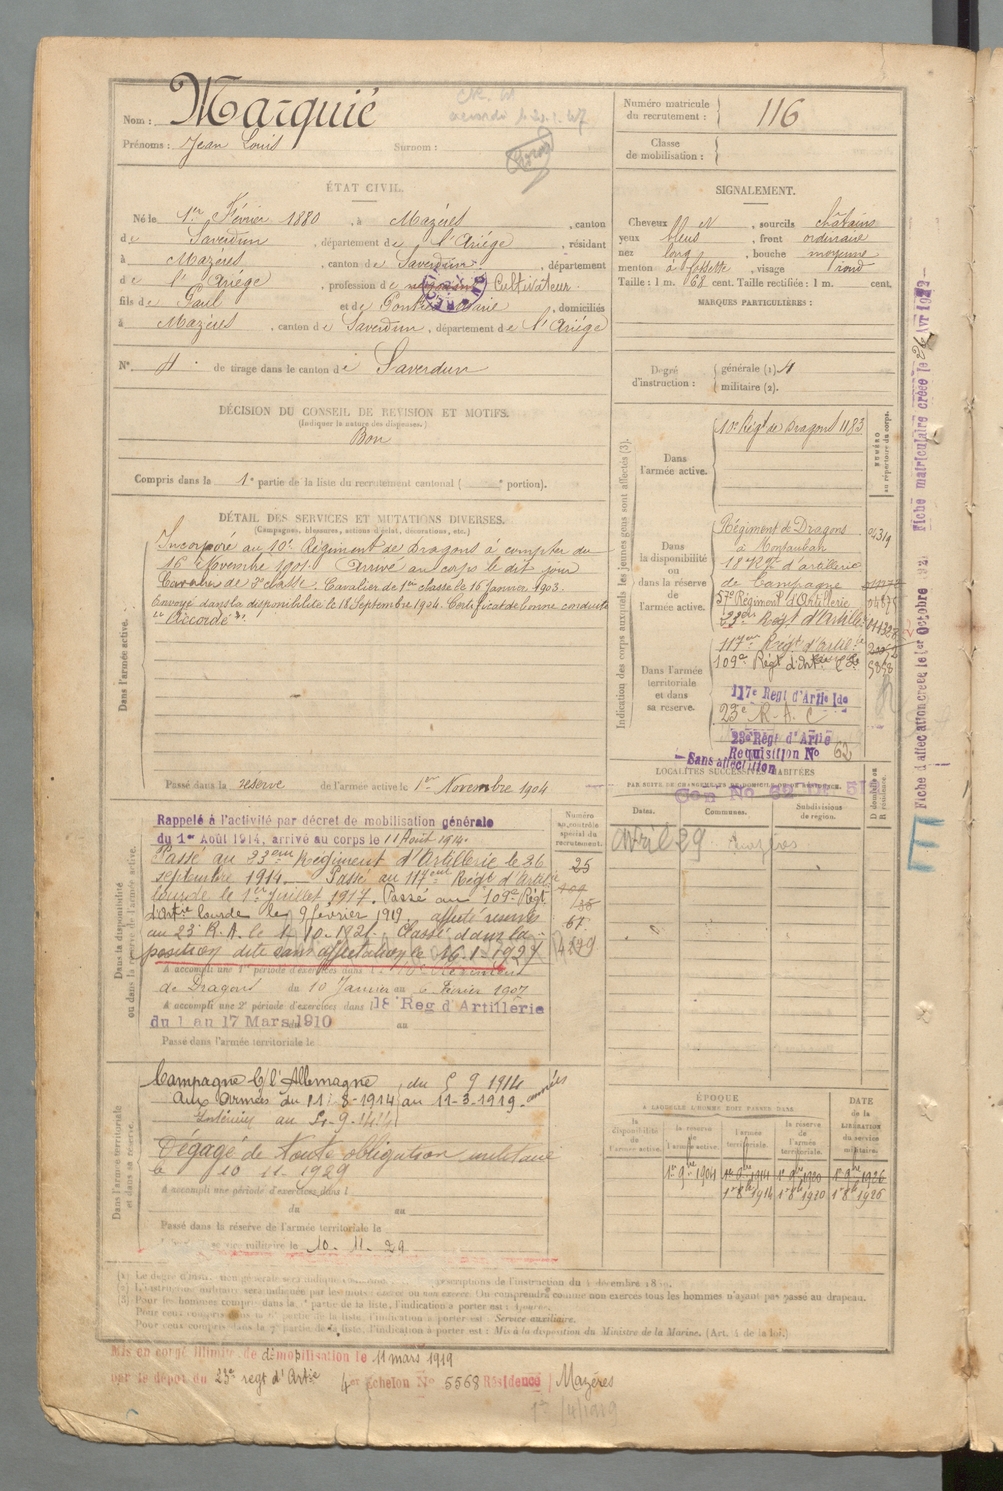 Nom : Marquié
Prénoms : Jean Louis Surnom :
Numéro matricule du recrutement : 116
Classe de mobilisation :
ÉTAT CIVIL.
Né le 1er Février 1880, à Mazères, canton
de Saverdun, département de l'Ariége, résidant
à Mazères, canton de Saverdun, département
de l'Ariége, profession de Cultivateur
fils de Paul et de, domiciliés
à Mazères, canton de Saverdun, département de l'Ariége
N° 4 de tirage dans le canton de Saverdun
SIGNALEMENT.
Cheveux, sourcils châtains
yeux bleus, front ordinaire
nez long, bouche moyenne
menton à fossette, visage rond
Taille : 1 m. 68 cent. Taille rectifiée : 1 m. cent.
MARQUES PARTICULIÈRES :
Degré d'instruction : générale (1) 4
militaire (2).
DÉCISION DU CONSEIL DE REVISION ET MOTIFS.
(Indiquer la nature des dispenses.)
Bon
Compris dans la 1e partie de la liste du recrutement cantonal ( portion).
DÉTAIL DES SERVICES ET MUTATIONS DIVERSES.
(Campagnes, blessures, actions d'éclat, décorations, etc.)
Dans l'armée active.
Incorporé au 10e Régiment de Dragons à compter du
16 Novembre 1901. Arrivé au corps le dit jour
Cavalier de 2e classe. Cavalier de 1re classe le 16 Janvier 1903.
Envoyé dans la disponibilité le 18 Septembre 1904. Certificat de bonne conduite
Accordé
Passé dans la réserve de l'armée active le 1er Novembre 1904
Dans la disponibilité ou dans la réserve de l'armée active.
Numéro au contrôle spécial du recrutement.
Rappelé à l'activité par décret de mobilisation générale
du 1er Août 1914, arrivé au corps le 11 Août 1914.
Passé au 23ème Régiment d'Artillerie le 26
septembre 1914. Passé au 117ème Régt d'Artie
lourde le 1er Juillet 1917. Passé au 109e Régt
d'Artie lourde le 9 février 1919 affecté réserves
au 23e R.A. le 1.10.1921. Classé dans la
position dite sans affectation le 16.1.1927
25
67
4229
A accompli une 1re période d'exercices dans l
de Dragons du 10 Janvier au 6 Février 1907
A accompli une 2e période d'exercices dans l 18e Reg d'Artillerie
du 1 au 17 Mars 1910 au
Passé dans l'armée territoriale le
Dans l'armée territoriale et dans sa réserve.
Campagne C/ l'Allemagne du
Aux armées du 11-8-1914 au 11-3-1919
Intérieur au
Dégagé de toute obligation militaire
le 10 11 1929
A accompli une période d'exercices dans l
du au
Passé dans la réserve de l'armée territoriale le
militaire le 10. 11. 29
Indication des corps auxquels les jeunes gens sont affectés (3).
NUMÉRO au répertoire du corps.
Dans l'armée active.
10e Régt de Dragons 1183
Dans la disponibilité ou dans la réserve de l'armée active.
Régiment de Dragons
à Montauban
18e Régt d'artillerie
de campagne
57e Régiment d'Artillerie
23ème Régt d'Artillie
Dans l'armée territoriale et dans sa réserve.
117ème Régt d'Artillie
109e Régt d'Artie
117e Regt d'Artie lde
23e R.A.C
23e Régt d'Artie
Requisition No 62
Sans affectation
LOCALITÉS SUCCESSIVES HABITÉES
PAR SUITE DE CHANGEMENTS DE DOMICILE OU DE RÉSIDENCE.
Dates. Communes. Subdivisions de région. D domicile ou R résidence.
avril 29 Mazères
ÉPOQUE
À LAQUELLE L'HOMME DOIT PASSER DANS
la disponibilité de l'armée active. la réserve de l'armée active. l'armée territoriale. la réserve de l'armée territoriale. DATE de la LIBÉRATION du service militaire.
1er 9bre 1904 1er 9bre 1914 1er 9bre 1920 1er 9bre 1926
1er 8bre 1914 1er 8bre 1920 1er 8bre 1926
Fiche d'affectation créée le 1er Octobre Fiche matriculaire créée le
(2) L'instruction militaire sera indiquée par les mots : exercé ou non exercé. On comprendra comme non exercés tous les hommes n'ayant pas passé au drapeau.
Pour ceux compris dans la 6e partie de la liste, l'indication à porter est : Service auxiliaire.
Pour ceux compris dans la 7e partie de la liste, l'indication à porter est : Mis à la disposition du Ministre de la Marine. (Art. 4 de la loi.)
Mis en congé illimité de démobilisation le 11 mars 1919
par le dépôt du 23e regt d'Artie 4er échelon N° 5568 Résidence Mazères